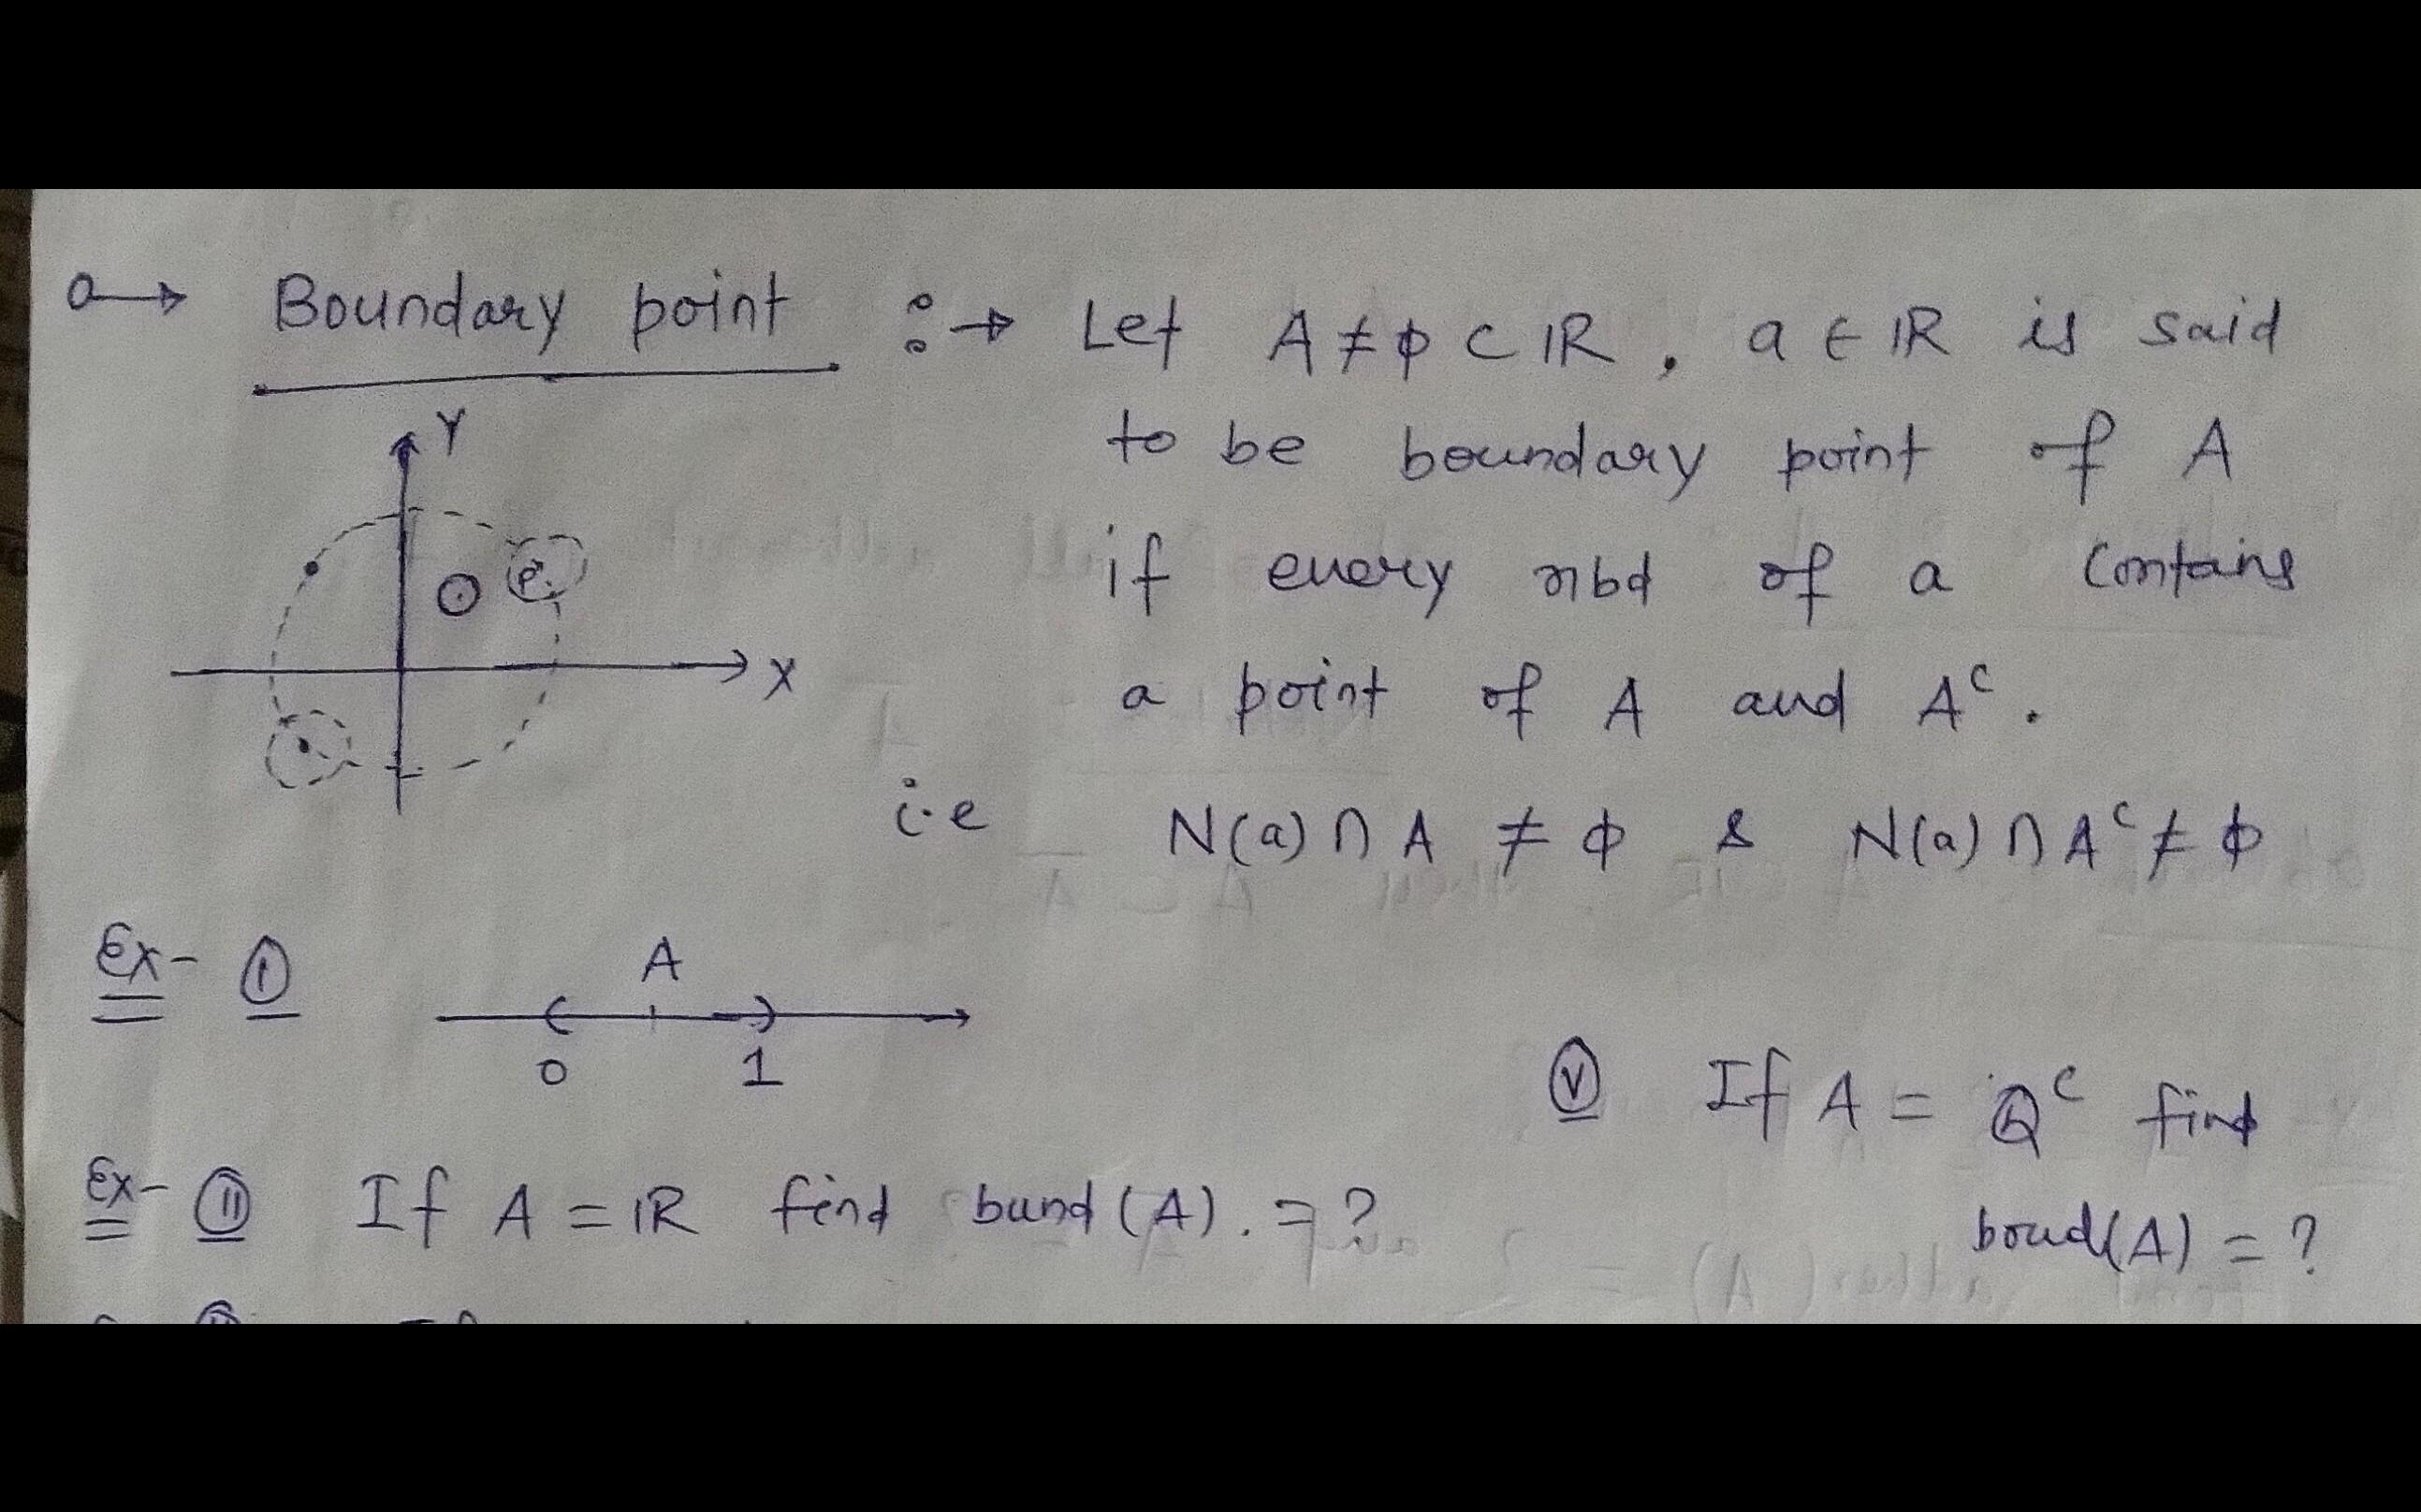 Boundary point :→ Let A ≠ ϕ ⊂ IR , a ∈ IR is said
to be boundary point of A
if every nbd of a contains
a point of A and Aᶜ.
i.e N(a) ∩ A ≠ ϕ & N(a) ∩ Aᶜ ≠ ϕ
Y
X
Ex- I
A
0 1
Ex- II If A = IR find bund (A). = ?
V If A = Qᶜ find
boud(A) = ?